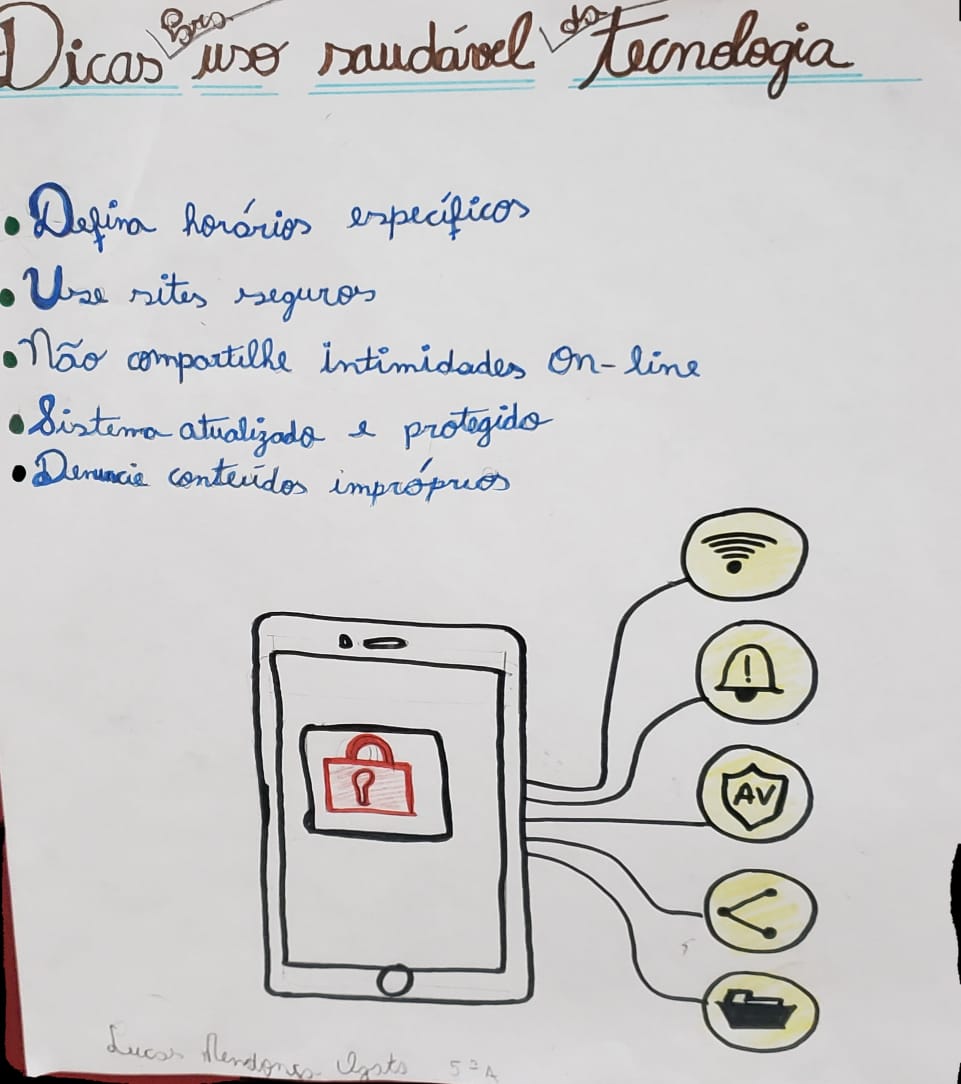 Dicas para uso saudável da tecnologia
• Defina horários específicos
• Use sites seguros
• Não compartilhe intimidades on-line
• Sistema atualizado e protegido
• Denuncie conteúdos impróprios
AV
Lucas 5ª A